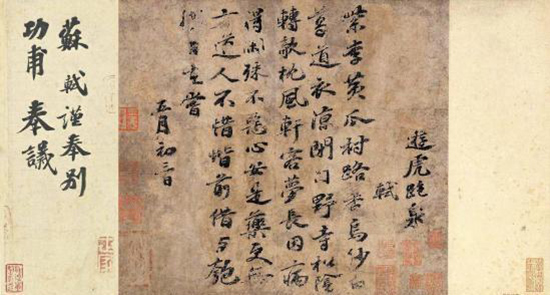 遊虎跑泉
軾
紫李黃瓜村路香烏紗白
葛道衣涼閉門野寺松陰
轉欹枕風軒客夢長因病
得閑殊不惡心安是藥更無
方道人不惜堦前借与匏
自嘗
五月初
蘇軾謹奉別
功甫奉議